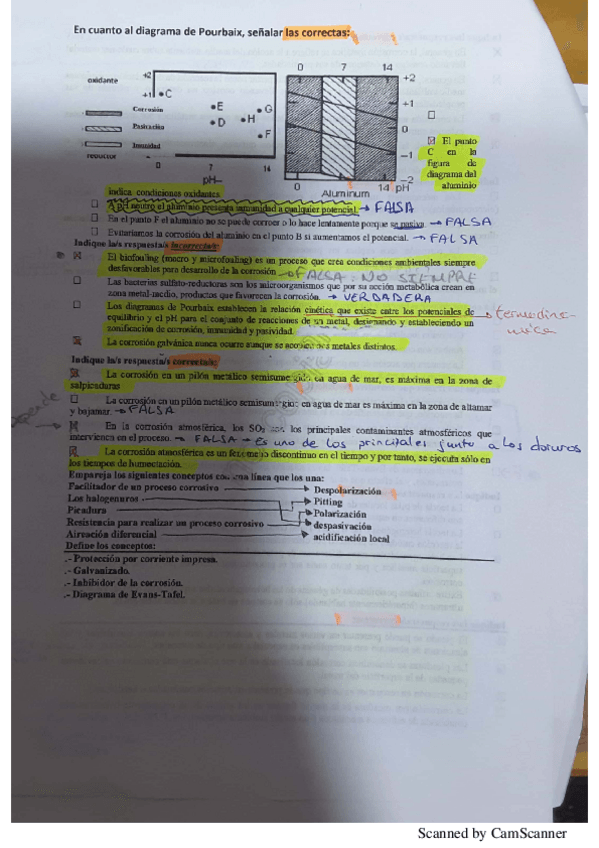 En cuanto al diagrama de Pourbaix, señalar las correctas:
oxidante +2
+1 • C
• E
• G
• D
• H
• F
Corrosión
Pasivación
Inmunidad
reductor 0 7 14
pH
0 7 14
+2
+1
0
−1
−2
0 Aluminum 14 pH
El punto
C en la
figura de
diagrama del
aluminio
indica condiciones oxidantes
A pH neutro el aluminio presenta inmunidad a cualquier potencial. → FALSA
En el punto F el aluminio no se puede corroer o lo hace lentamente porque se pasiva → FALSA
Evitaríamos la corrosión del aluminio en el punto B si aumentamos el potencial. → FALSA
Indique la/s respuesta/s incorrecta/s:
El biofouling (macro y microfouling) es un proceso que crea condiciones ambientales siempre
desfavorables para desarrollo de la corrosión → FALSA. NO SIEMPRE
Las bacterias sulfato-reductoras son los microorganismos que por su acción metabólica crean en
zona metal-medio, productos que favorecen la corrosión. → VERDADERA
Los diagramas de Pourbaix establecen la relación cinética que existe entre los potenciales de → termodinámica
equilibrio y el pH para el conjunto de reacciones de un metal, designando y estableciendo un
zonificación de corrosión, inmunidad y pasividad.
La corrosión galvánica nunca ocurre aunque se acoplen dos metales distintos.
Indique la/s respuesta/s correcta/s:
La corrosión en un pilón metálico semisumergido en agua de mar, es máxima en la zona de
salpicaduras
La corrosión en un pilón metálico semisumergido en agua de mar es máxima en la zona de altamar
y bajamar. → FALSA
En la corrosión atmosférica, los SO₂ son los principales contaminantes atmosféricos que
intervienen en el proceso. → FALSA → Es uno de los principales junto a los cloruros
La corrosión atmosférica es un fenómeno discontinuo en el tiempo y por tanto, se ejecuta sólo en
los tiempos de humectación.
Empareja los siguientes conceptos con una línea que los una:
Facilitador de un proceso corrosivo Despolarización
Los halogenuros Pitting
Picadura Polarización
Resistencia para realizar un proceso corrosivo despasivación
Aireación diferencial acidificación local
Define los conceptos:
.- Protección por corriente impresa.
.- Galvanizado.
.- Inhibidor de la corrosión.
.- Diagrama de Evans-Tafel.
Scanned by CamScanner